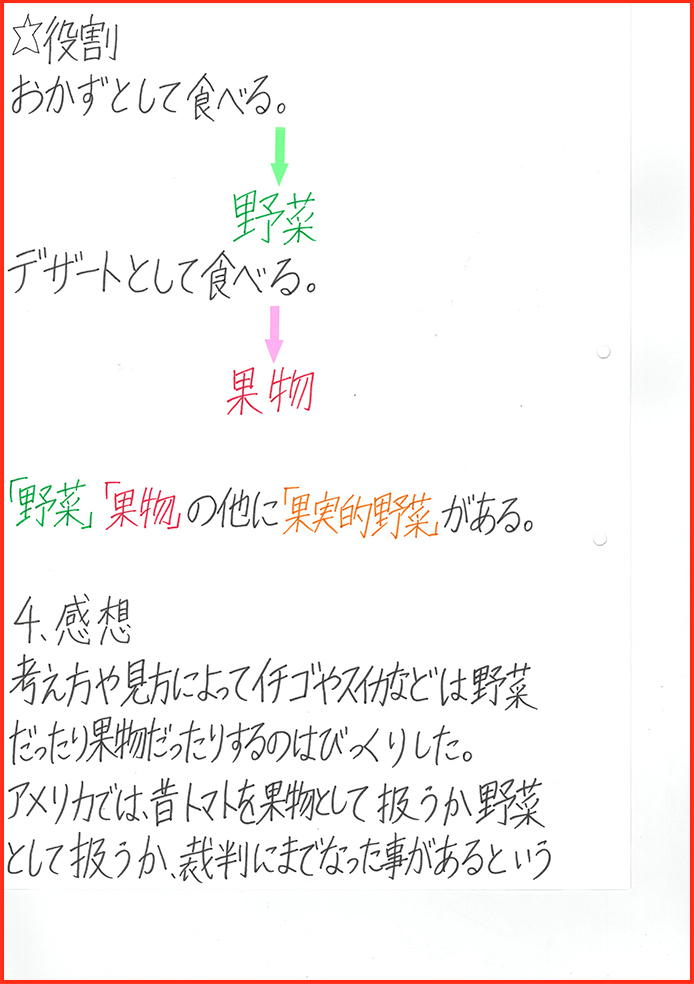 ☆役割
おかずとして食べる。
野菜
デザートとして食べる。
果物
「野菜」「果物」の他に「果実的野菜」がある。
4、感想
考え方や見方によってイチゴやスイカなどは野菜
だったり果物だったりするのはびっくりした。
アメリカでは、昔トマトを果物として扱うか野菜
として扱うか、裁判にまでなった事があるという